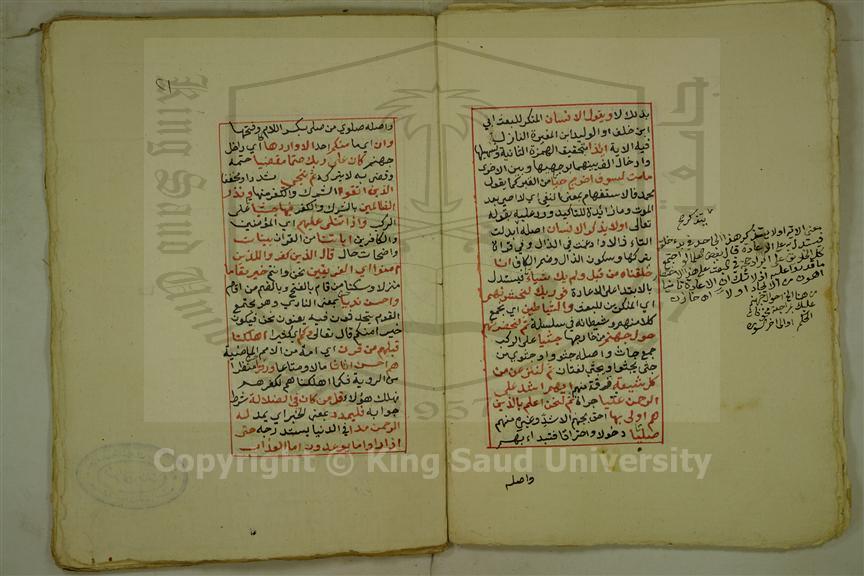 بدلالا ويقول الانسان المنكر للبعث ابي
ابن خلف او الوليد ابن المغيرة النازل
فيه الاية ائذا بتحقيق الهمزة الثانية وتسهيلها
وادخال الف بينهما بوجهيها وبين الاخرى
ما مت لسوف اخرج حيا من القبر كما يقول
محمد فالاستفهام بمعنى النفي اي لا احيى بعد
الموت وما زائدة للتاكيد ورد عليه بقوله
تعالى اولا يذكر الانسان اصله ابدلت
التاء ذالا وادغمت في الذال وفي قراة
بتركها وسكون الذال وضم الكاف انا
خلقناه من قبل ولم يك شيئا فيستدل
بالابتداء على الاعادة فوربك لنحشرنهم
اي المنكرين للبعث والشياطين اي نجمع
كلا منهم وشيطانه في سلسلة ثم لنحضرنهم
حول جهنم من خارجها جثيا على الركب
جمع جاث واصله جثوو او جثوي من
جثى يجثوا ويجثي لغتان ثم لننزعن من
كل شيعة فرقة منهم ايهم اشد على
الرحمن عتيا جراة ثم لنحن اعلم بالذين
هم اولى بها احق بجهنم الاشد وغيره منهم
صليا دخولا واحتراقا فنبداء بهم
واصله
واصله صلوي من صلى بكسر اللام وفتحها
وان اي ما منكم احد الا واردها اي داخل
جهنم كان على ربك حتما مقضيا حتمه
وقضى به لا يتركه ثم ننجي مشددا ومخففا
الذين اتقوا الشرك والكفر منها ونذر
الظالمين بالشرك والكفر فيها جثيا على
الركب واذا تتلى عليهم اي المؤمنين
والكافرين اياتنا من القران بينات
واضحات حال قال الذين كفروا للذين
امنوا اي الفريقين نحن وانتم خير مقاما
منزلا ومسكنا من قام بالفتح وبالضم من اقام
واحسن نديا بمعنى النادي وهو مجتمع
القوم يتحدثون فيه يعنون نحن فيكون
خيرا منكم قال تعالى وكم اي كثيرا اهلكنا
قبلهم من قرن اي امة من الامم الماضية
هم احسن اثاثا مالا ومتاعا ورئيا منظرا
من الروية فكما اهلكناهم لكفرهم
نهلك هؤلاء قل من كان في الضلالة شرط
جوابه فليمدد بمعنى الخبر اي يمد له
الرحمن مدا في الدنيا يستدرجه حتى
اذا راوا ما يوعدون اما العذاب
Copyright © King Saud University
King Saud University
1957